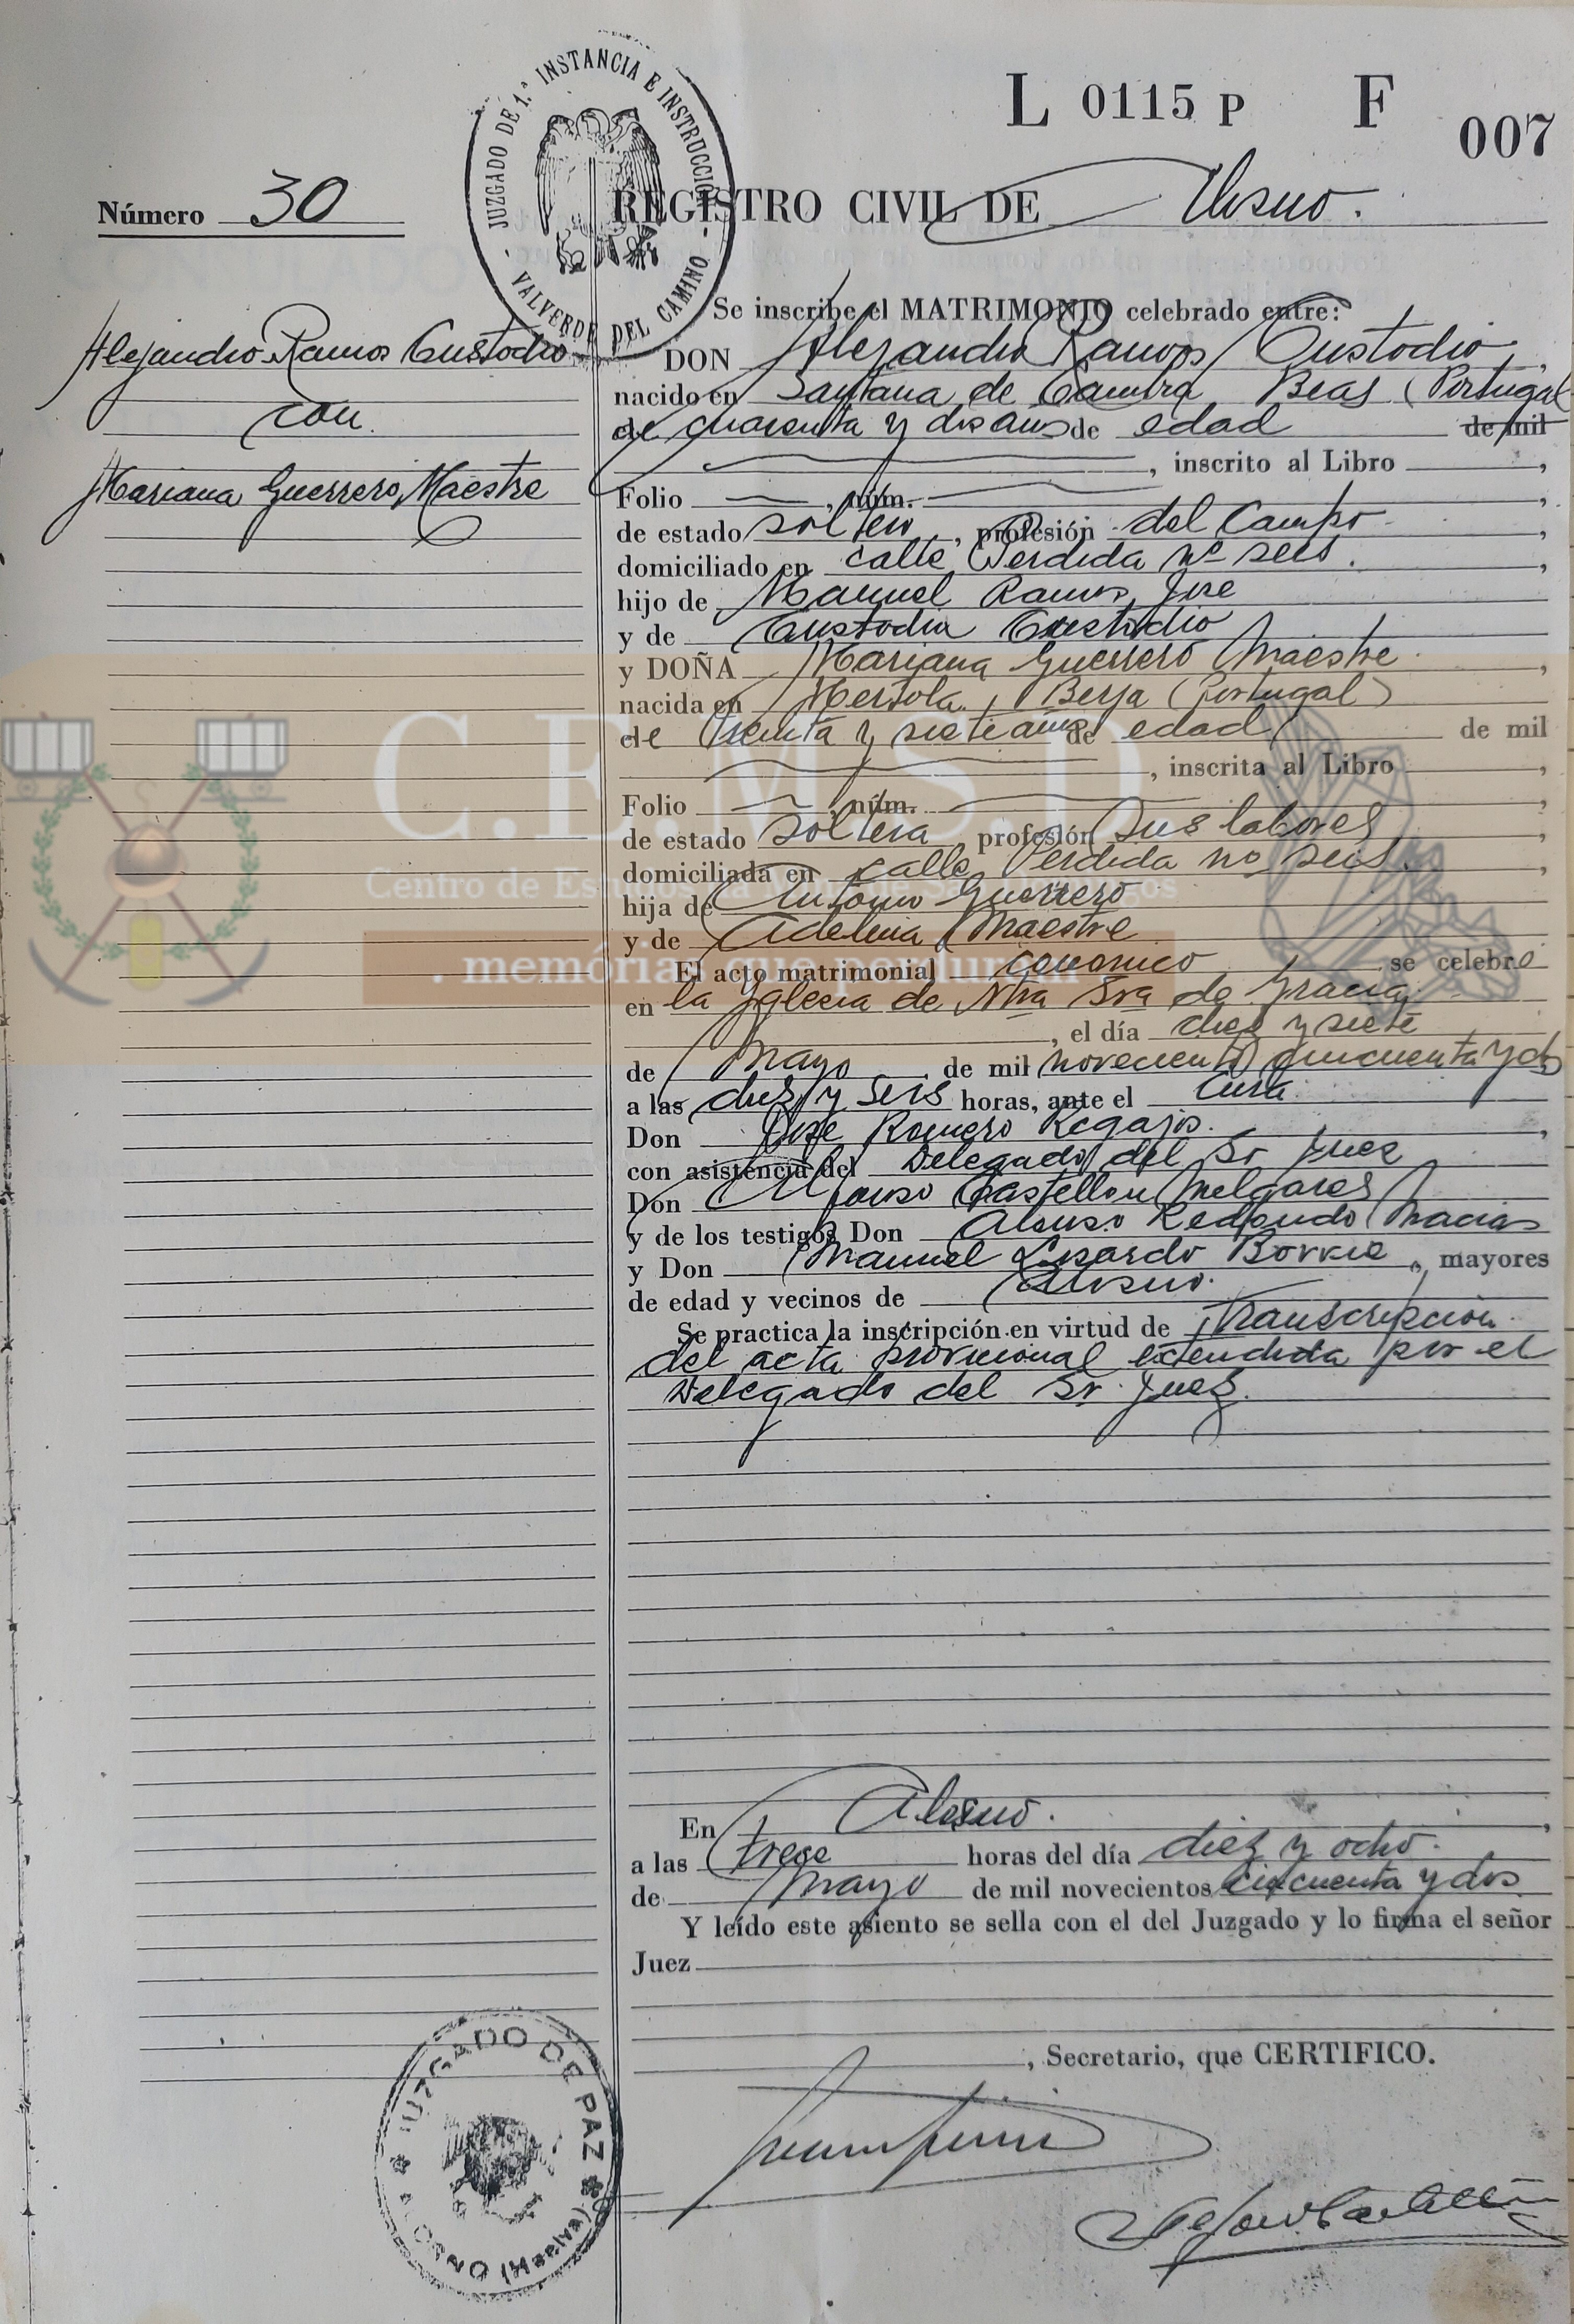 L 0115 P F 007
JUZGADO DE 1.ª INSTANCIA E INSTRUCCIÓN
- VALVERDE DEL CAMINO -
Número 30
REGISTRO CIVIL DE Alosno.
Alejandro Ramos Custodio
con
Mariana Guerrero Maestre
Se inscribe el MATRIMONIO celebrado entre:
DON Alejandro Ramos Custodio,
nacido en Santana de Beas (Portugal
de cuarenta y dos años de edad de mil
, inscrito al Libro ,
Folio , núm. ,
de estado soltero, profesión del Campo ,
domiciliado en calle Perdida nº seis. ,
hijo de Manuel Ramos José
y de Custodia Custodio
y DOÑA Mariana Guerrero Maestre ,
nacida en Mertola, Berja (Portugal)
de treinta y siete años de edad de mil
, inscrita al Libro ,
Folio , núm. ,
de estado soltera profesión sus labores ,
domiciliada en calle Perdida no seis. ,
hija de Antonio Guerrero
y de Adelina Maestre
El acto matrimonial canonico se celebro
en la Yglesia de Ntra Sra de Gracia
, el día diez y siete
de Mayo de mil novecientos cincuenta y dos
a las diez y seis horas, ante el Cura
Don José Romero Regajo. ,
con asistencia del Delegado del Sr Juez
Don Alfonso Castellon Melgares
y de los testigos Don Alonso Redondo Macias
y Don Manuel Lisardo , mayores
de edad y vecinos de Alosno.
Se practica la inscripción en virtud de Transcripcion
del acta provicional extendida por el
Delegado del Sr. Juez.
C.E.M.S.D
Centro de Estudios
. memórias que perduran .
En Alosno. ,
a las trece horas del día diez y ocho.
de Mayo de mil novecientos cincuenta y dos
Y leído este asiento se sella con el del Juzgado y lo firma el señor
Juez
, Secretario, que CERTIFICO.
JUZGADO DE PAZ
ALOSNO (Huelva)